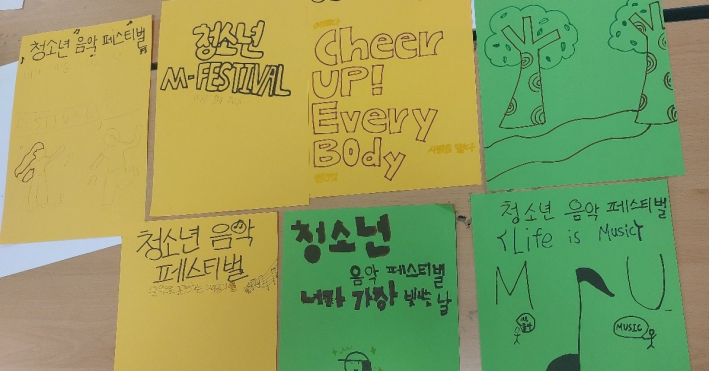 청소년 음악 페스티벌
청소년
M-FESTIVAL
Cheer
UP!
Every
Body
청소년 음악
페스티벌
청소년
음악 페스티벌
너가 가장 빛나는 날
청소년 음악 페스티벌
<Life is Music>
M U
MUSIC